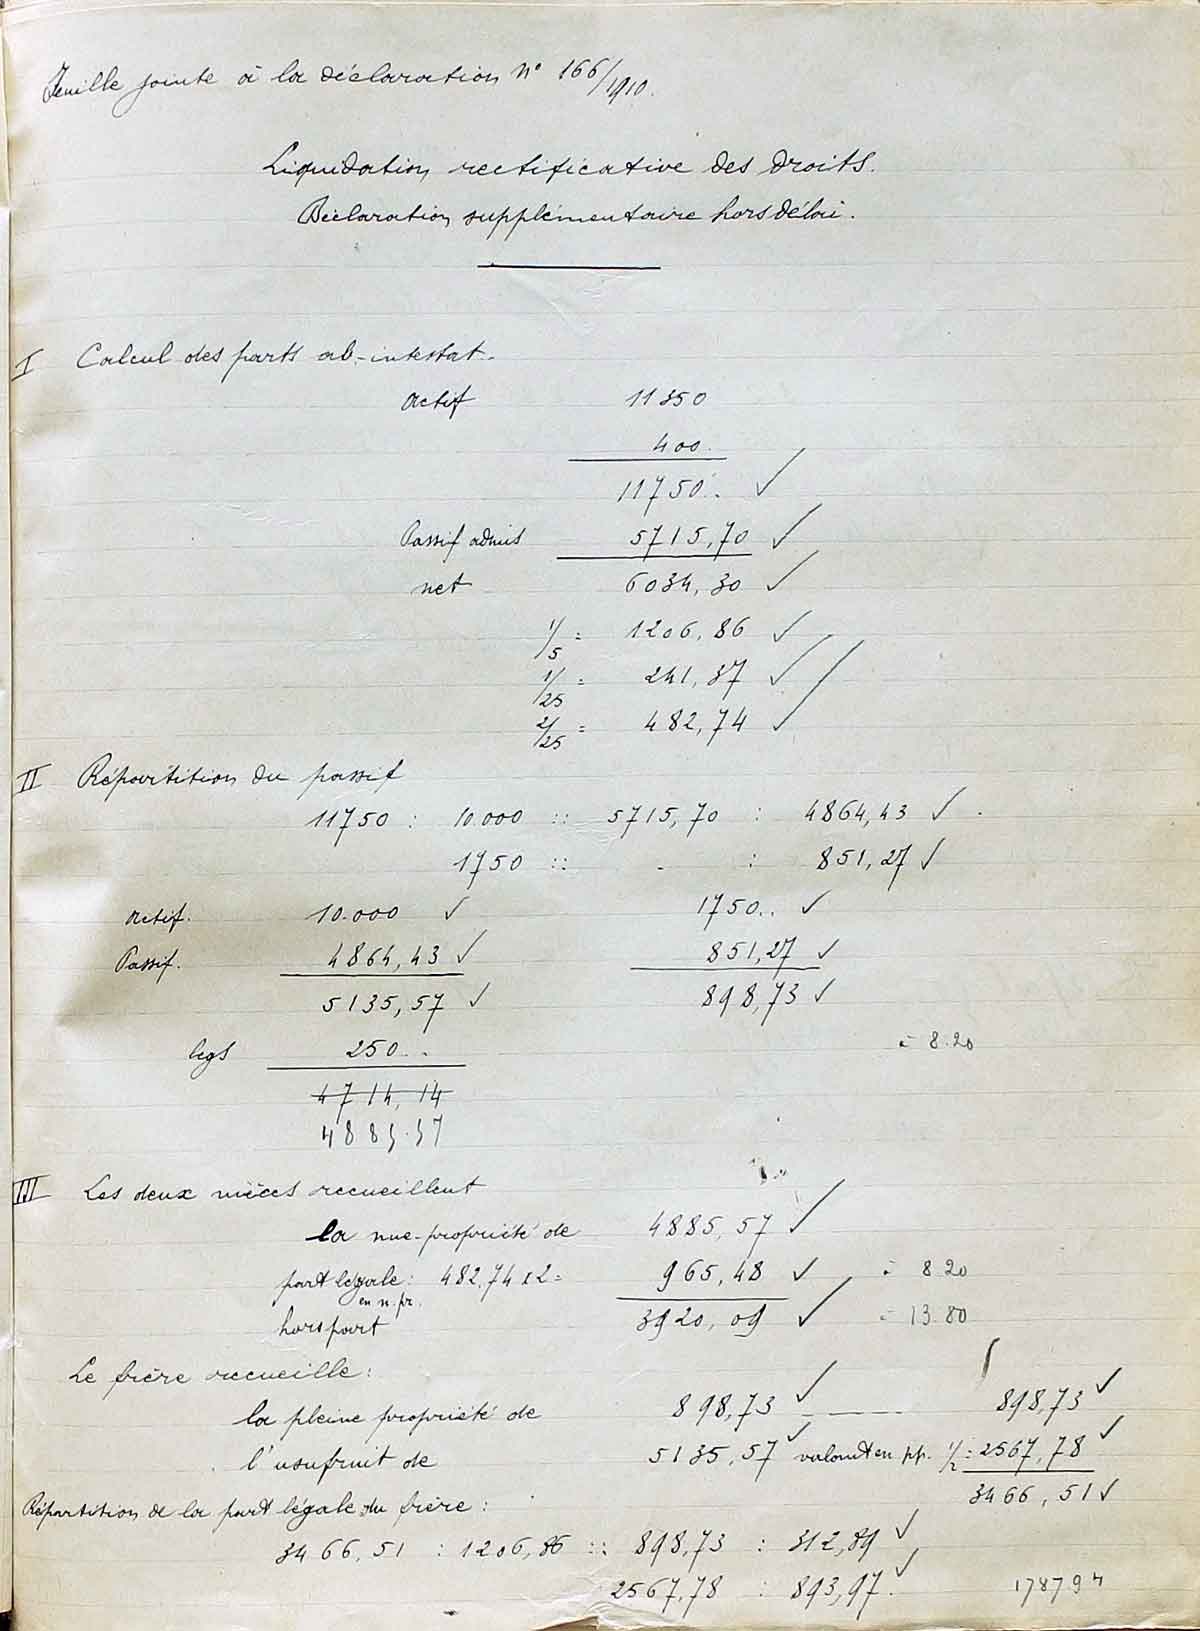 Feuille jointe à la déclaration n° 166/1910.
Liquidation rectificative des droits.
Déclaration supplémentaire hors délai.
I Calcul des parts ab-intestat.
Actif 11350
400.
11750..
Passif admis 5715,70
net 6034,30
1/5 = 1206,86
1/25 = 241,37
2/25 = 482,74
II Répartition du passif
11750 : 10.000 :: 5715,70 : 4864,43
1750 :: . : 851,27
Actif. 10.000 1750..
Passif. 4864,43 851,27
5135,57 898,73
legs 250.. à 8.20
4714,14
4885.57
III Les deux nièces recueillent
la nue-propriété de 4885,57
part légale : 482,74 x 2 = 965,48 à 8.20
en n. pr.
hors part 3920,09 à 13.80
Le frère recueille :
la pleine propriété de 898,73 898,73
l'usufruit de 5135,57 valant en pp. 1/2 = 2567,78
3466,51
Répartition de la part légale du frère :
3466,51 : 1206,86 :: 898,73 : 312,89
2567,78 : 893,97. 178794